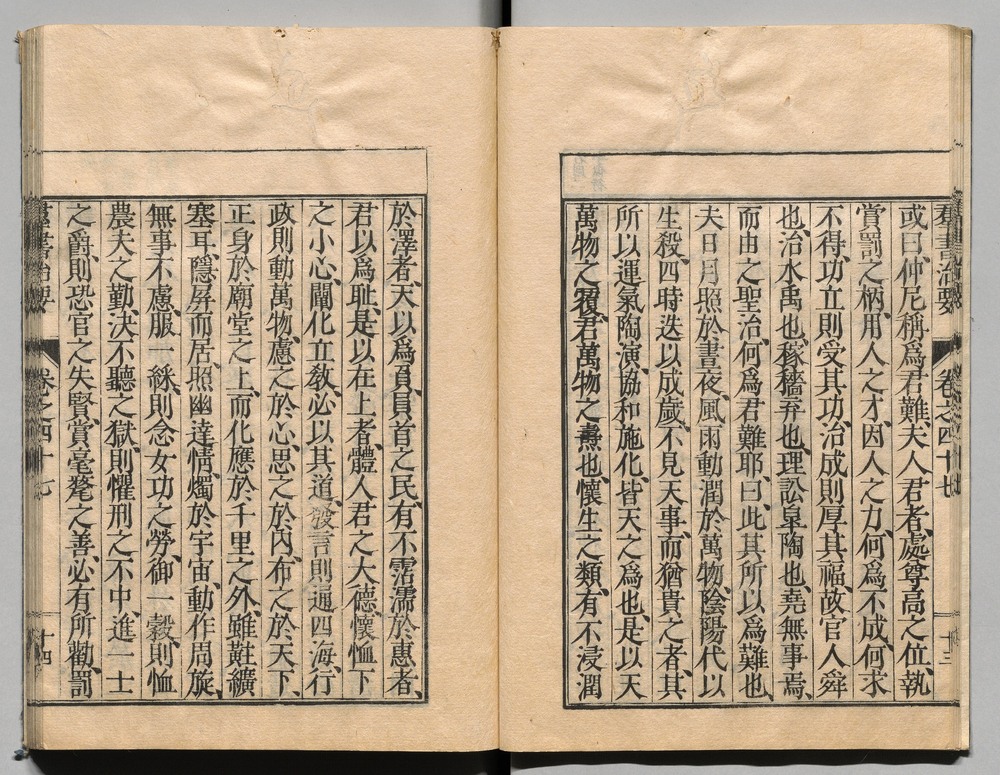 羣書治要 卷之四十七 十三
或曰、仲尼稱爲君難、夫人君者、處尊高之位、執
賞罰之柄、用人之才、因人之力、何爲不成、何求
不得、功立則受其功、治成則厚其福、故官人舜
也、治水禹也、稼穡弃也、理訟臯陶也、堯無事焉、
而由之聖治、何爲君難耶、曰、此其所以爲難也、
夫日月照於晝夜、風雨動潤於萬物、陰陽代以
生殺、四時迭以成歲、不見天事、而猶貴之者、其
所以運氣陶演、協和施化、皆天之爲也、是以天
萬物之覆、君萬物之燾也、懷生之類、有不浸潤
於澤者、天以爲負、員首之民、有不霑濡於惠者、
君以爲耻、是以在上者、體人君之大德、懷恤下
之小心、闡化立敎、必以其道、發言則通四海、行
政則動萬物、慮之於心、思之於內、布之於天下、
正身於廟堂之上、而化應於千里之外、雖黈纊
塞耳、隱屏而居、照幽達情、燭於宇宙、動作周旋、
無事不慮、服一綵、則念女功之勞、御一穀、則恤
農夫之勤、決不聽之獄、則懼刑之不中、進一士
之爵、則恐官之失賢、賞毫氂之善、必有所勸、罰
羣書治要 卷之四十七 十四